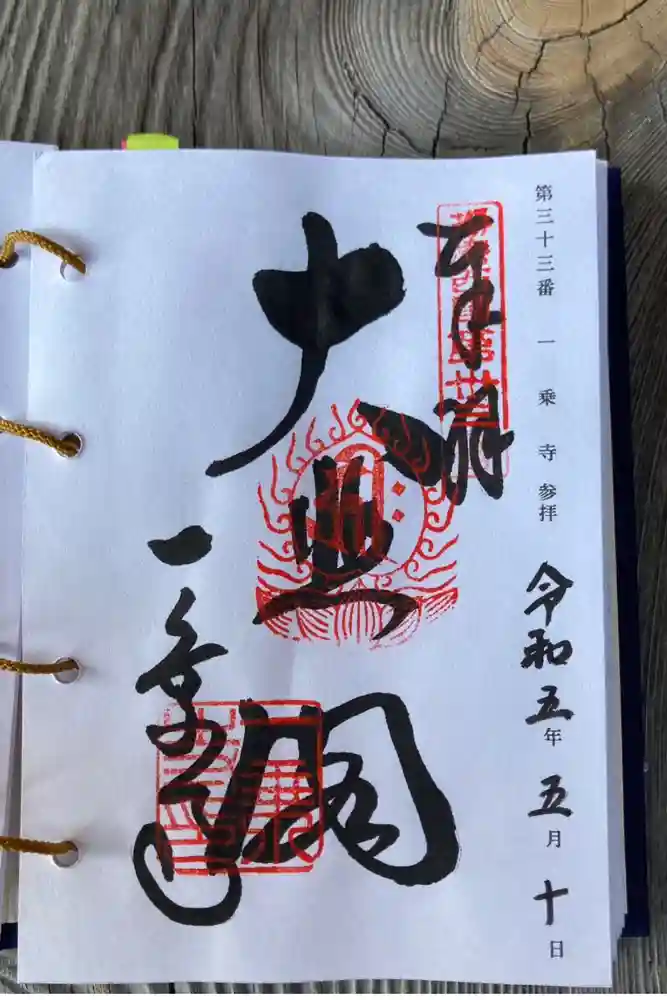 第三十三番 一乗寺参拝 令和五年五月十日
奉拝
大悲閣
一乗寺